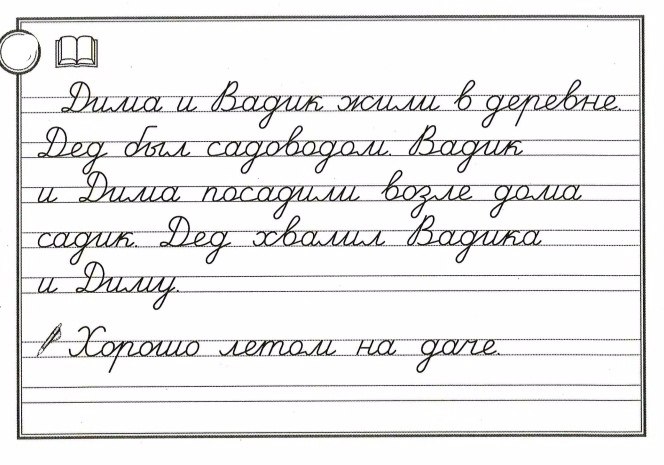 Дима и Вадик жили в деревне.
Дед был садоводом. Вадик
и Дима посадили возле дома
садик. Дед хвалил Вадика
и Диму.
Хорошо летом на даче.